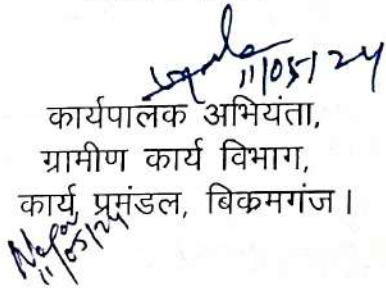 11/05/24
कार्यपालक अभियंता,
ग्रामीण कार्य विभाग,
कार्य प्रमंडल, बिक्रमगंज।
11/05/24